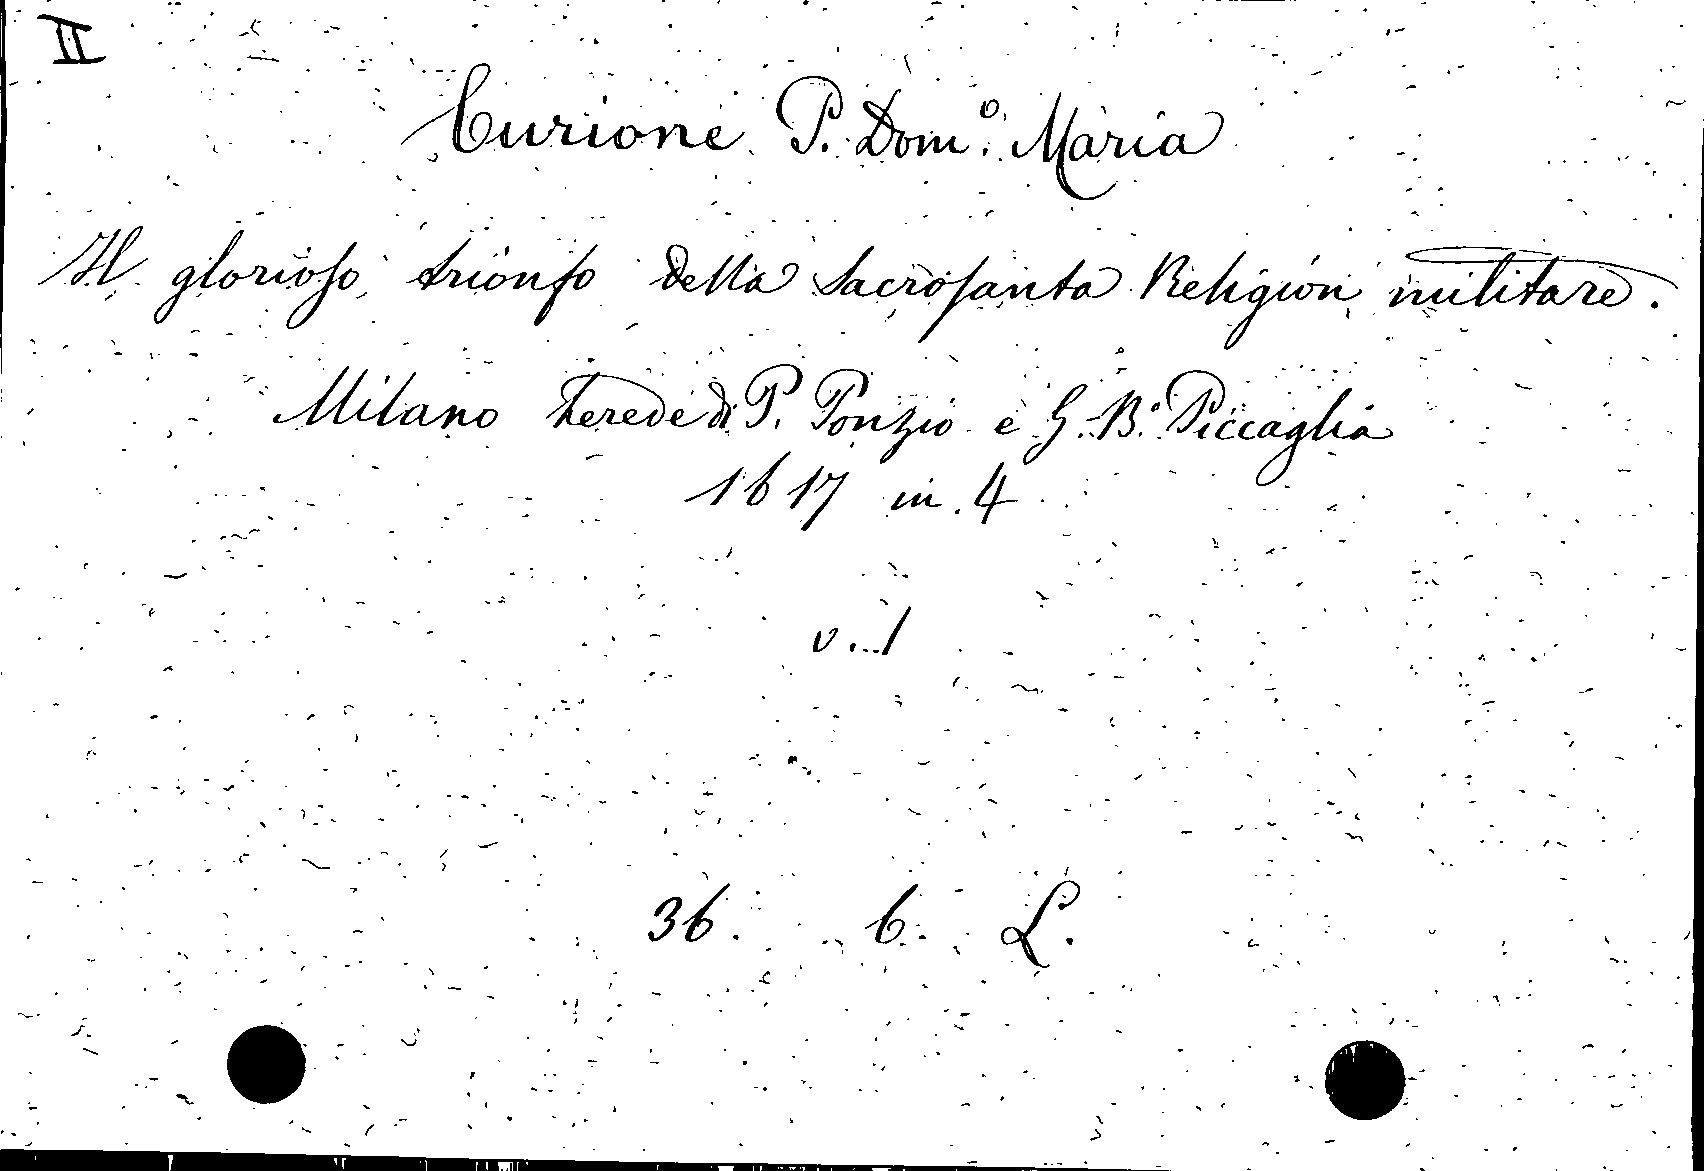 II
Curione P. Dom.º Maria
Il glorioso trionfo della Sacrosanta Religion militare.
Milano herede di P. Ponzio e G. B.ª Piccaglia
1617 in 4
v. 1
36. 6. L.